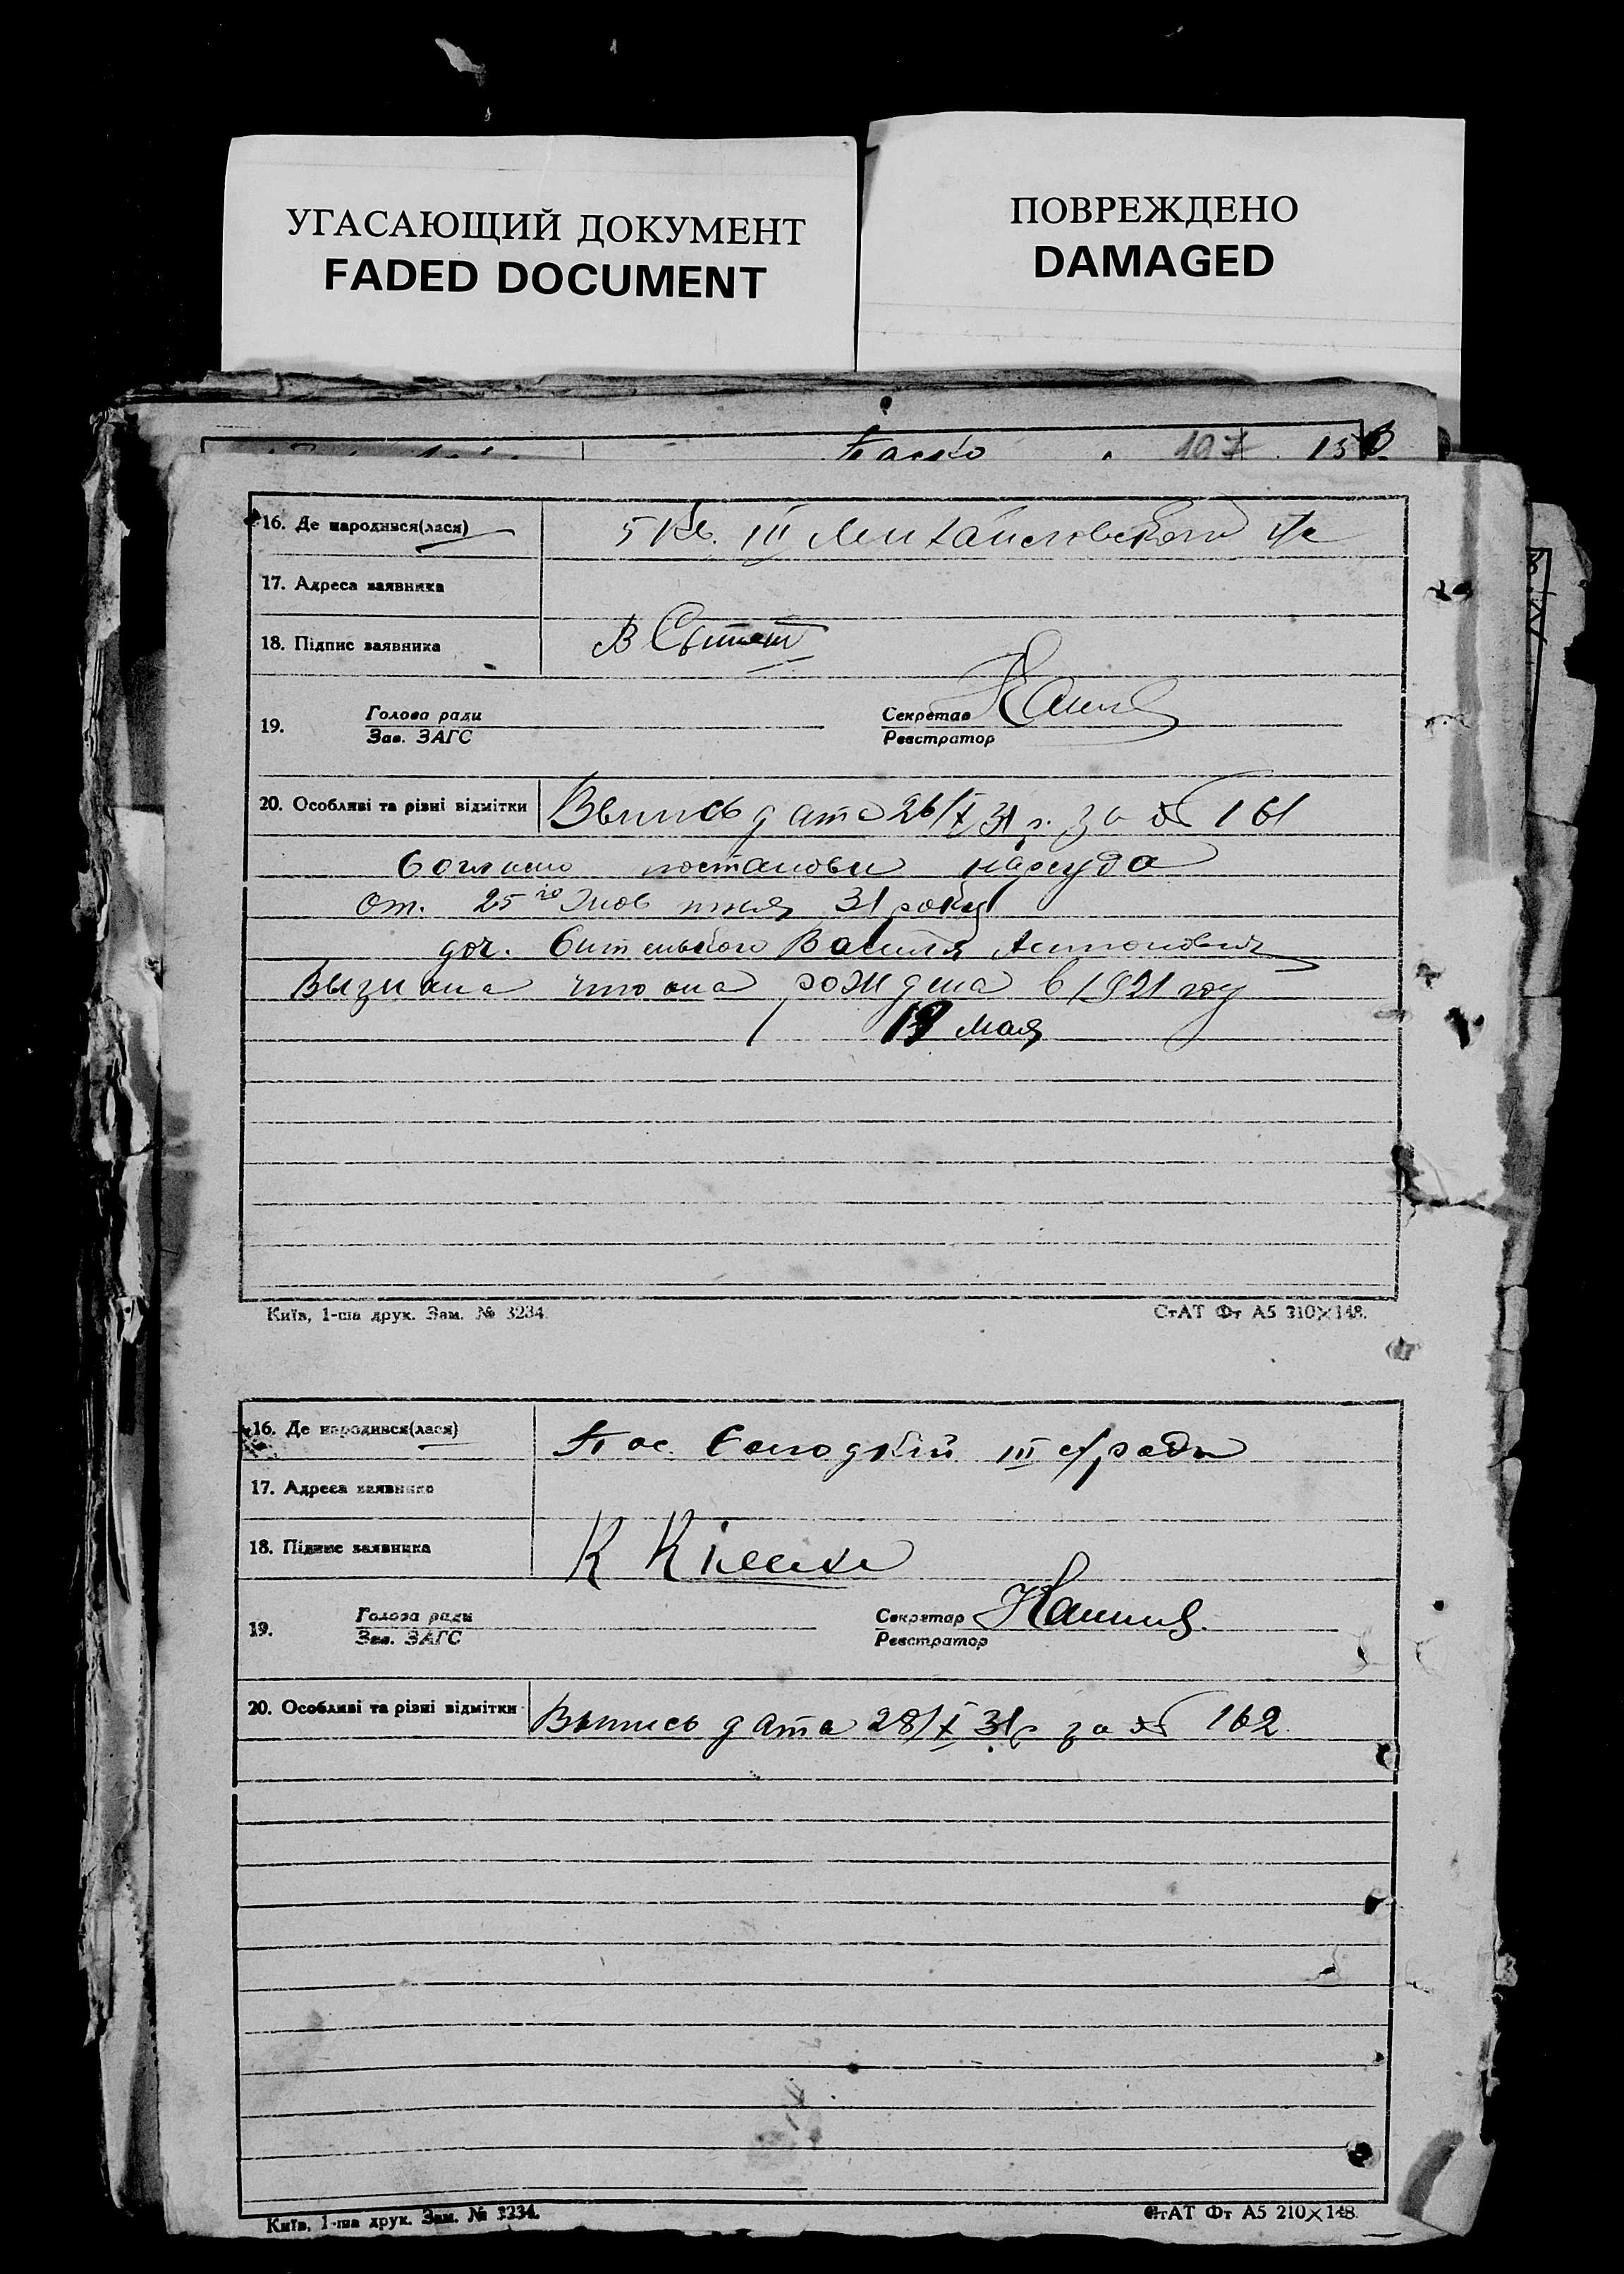 УГАСАЮЩИЙ ДОКУМЕНТ
FADED DOCUMENT
ПОВРЕЖДЕНО
DAMAGED
107
16. Де народився(лася) 5 Кв. III Михайловского с/с
17. Адреса заявника
18. Підпис заявника В
19. Голова ради Секретар
Зав. ЗАГС Реєстратор
20. Особливі та різні відмітки Выпись дата 26/X 31 г. за № 161
Согласно постановы нарсуда
От. 25го Жовтня 31 року
доч. Василя Антонович
что она рождена в 1921 году
19 мая
Київ, 1-ша друк. Зам. № 3234. СтАТ Фт А5 210×148.
16. Де народився(лася) Пос. III с/рады
17. Адреса заявника
18. Підпис заявника К
19. Голова ради Секретар
Зав. ЗАГС Реєстратор
20. Особливі та різні відмітки Выпись дата 28/X 31 г за № 162
Київ, 1-ша друк. Зам. № 3234. СтАТ Фт А5 210×148.